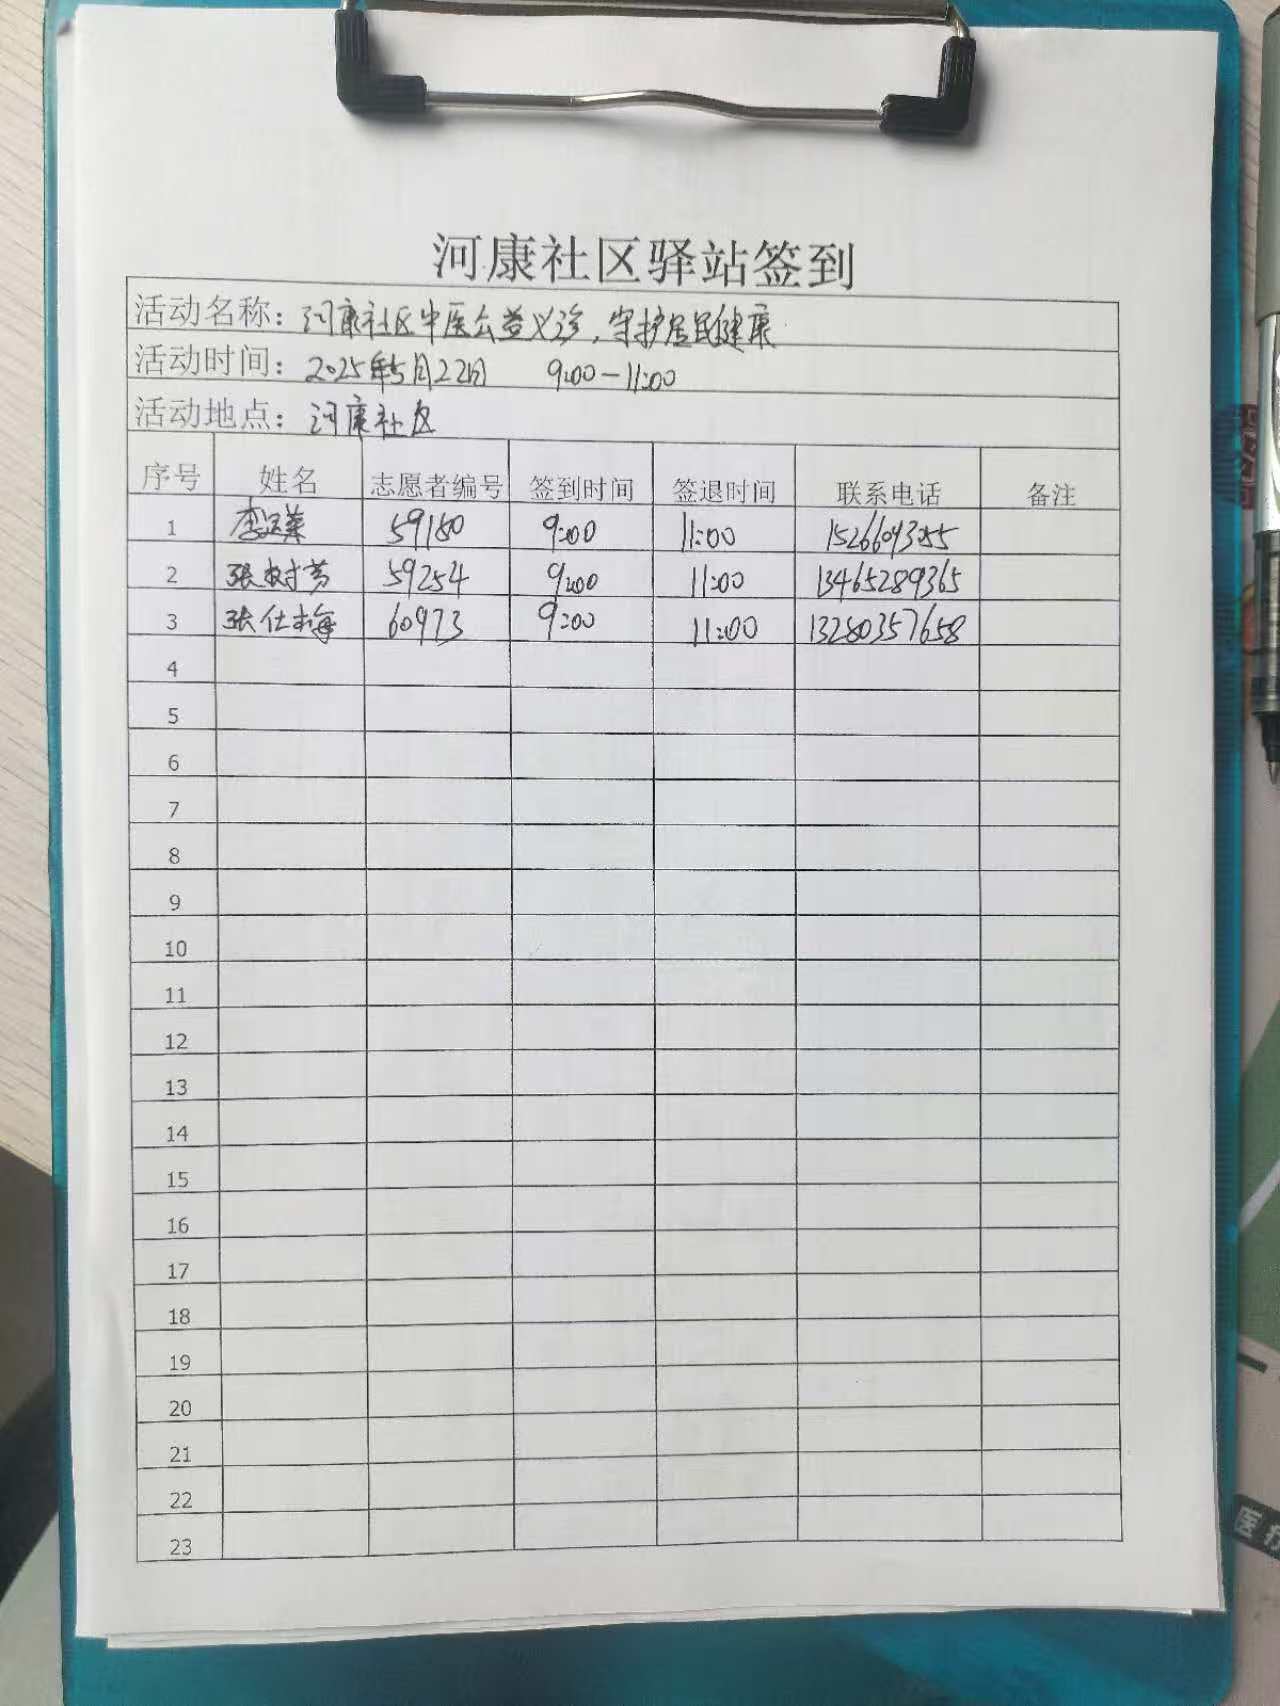 河康社区驿站签到
活动名称：河康社区中医公益义诊，守护居民健康
活动时间：2025年5月22日 9:00-11:00
活动地点：河康社区
序号 姓名 志愿者编号 签到时间 签退时间 联系电话 备注
1 李 59180 9:00 11:00
2 张树芳 59254 9:00 11:00 13465289365
3 张仕梅 60973 9:00 11:00 13280357658
4
5
6
7
8
9
10
11
12
13
14
15
16
17
18
19
20
21
22
23
医疗